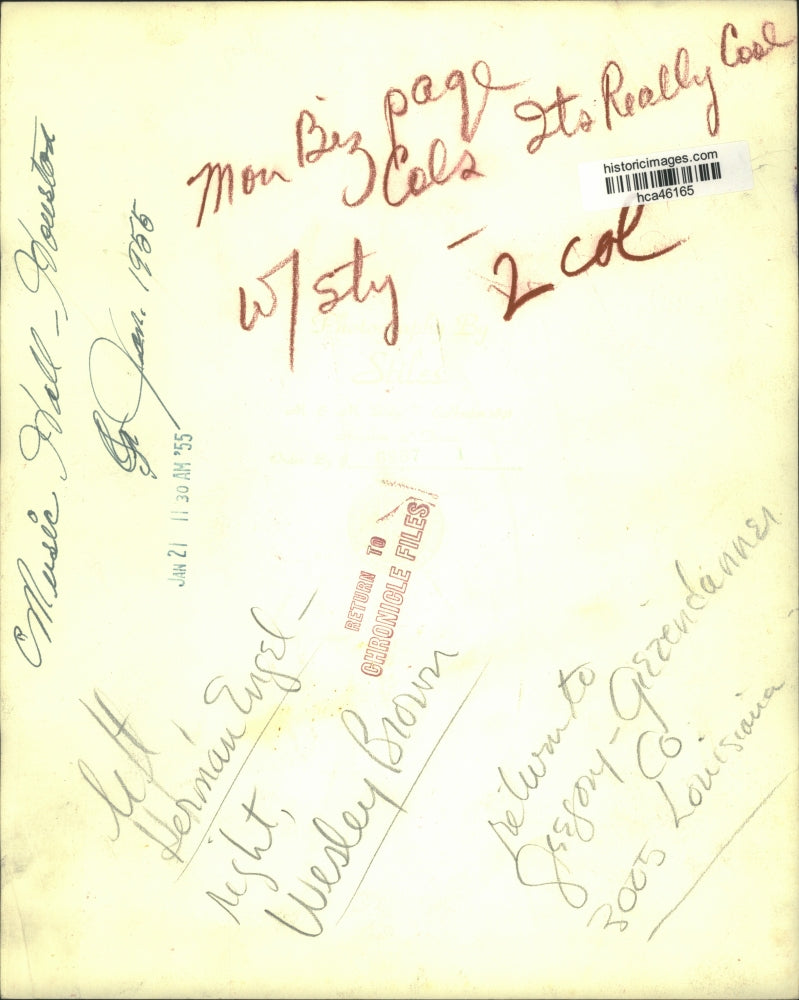 Mon Biz page
2 Cols Its Really Cool
historicimages.com
hca46165
w/sty - 2 col
Music Hall - Houston
Jan. 1955
JAN 21 11 30 AM '55
RETURN TO
CHRONICLE FILES
left
Herman Engel -
right,
Wesley Brown
return to
Gregory - Giezendanner
Co.
3005 Louisiana